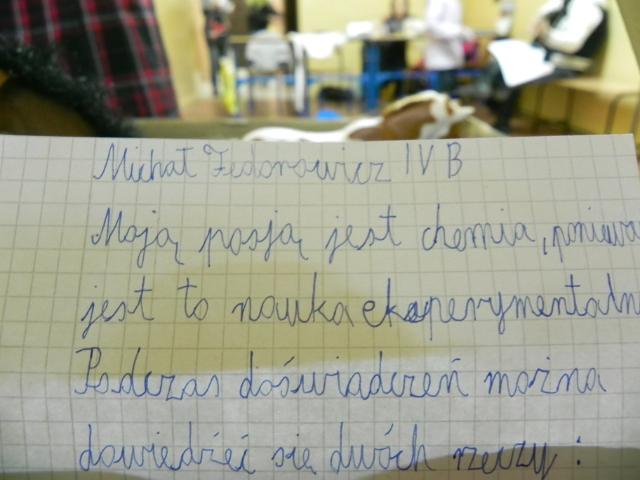 Michał Fedorowicz IV B
Moją pasją jest chemia, poniewa
jest to nauka eksperymentaln
Podczas doświadczeń można
dowiedzieć się dwóch rzeczy: